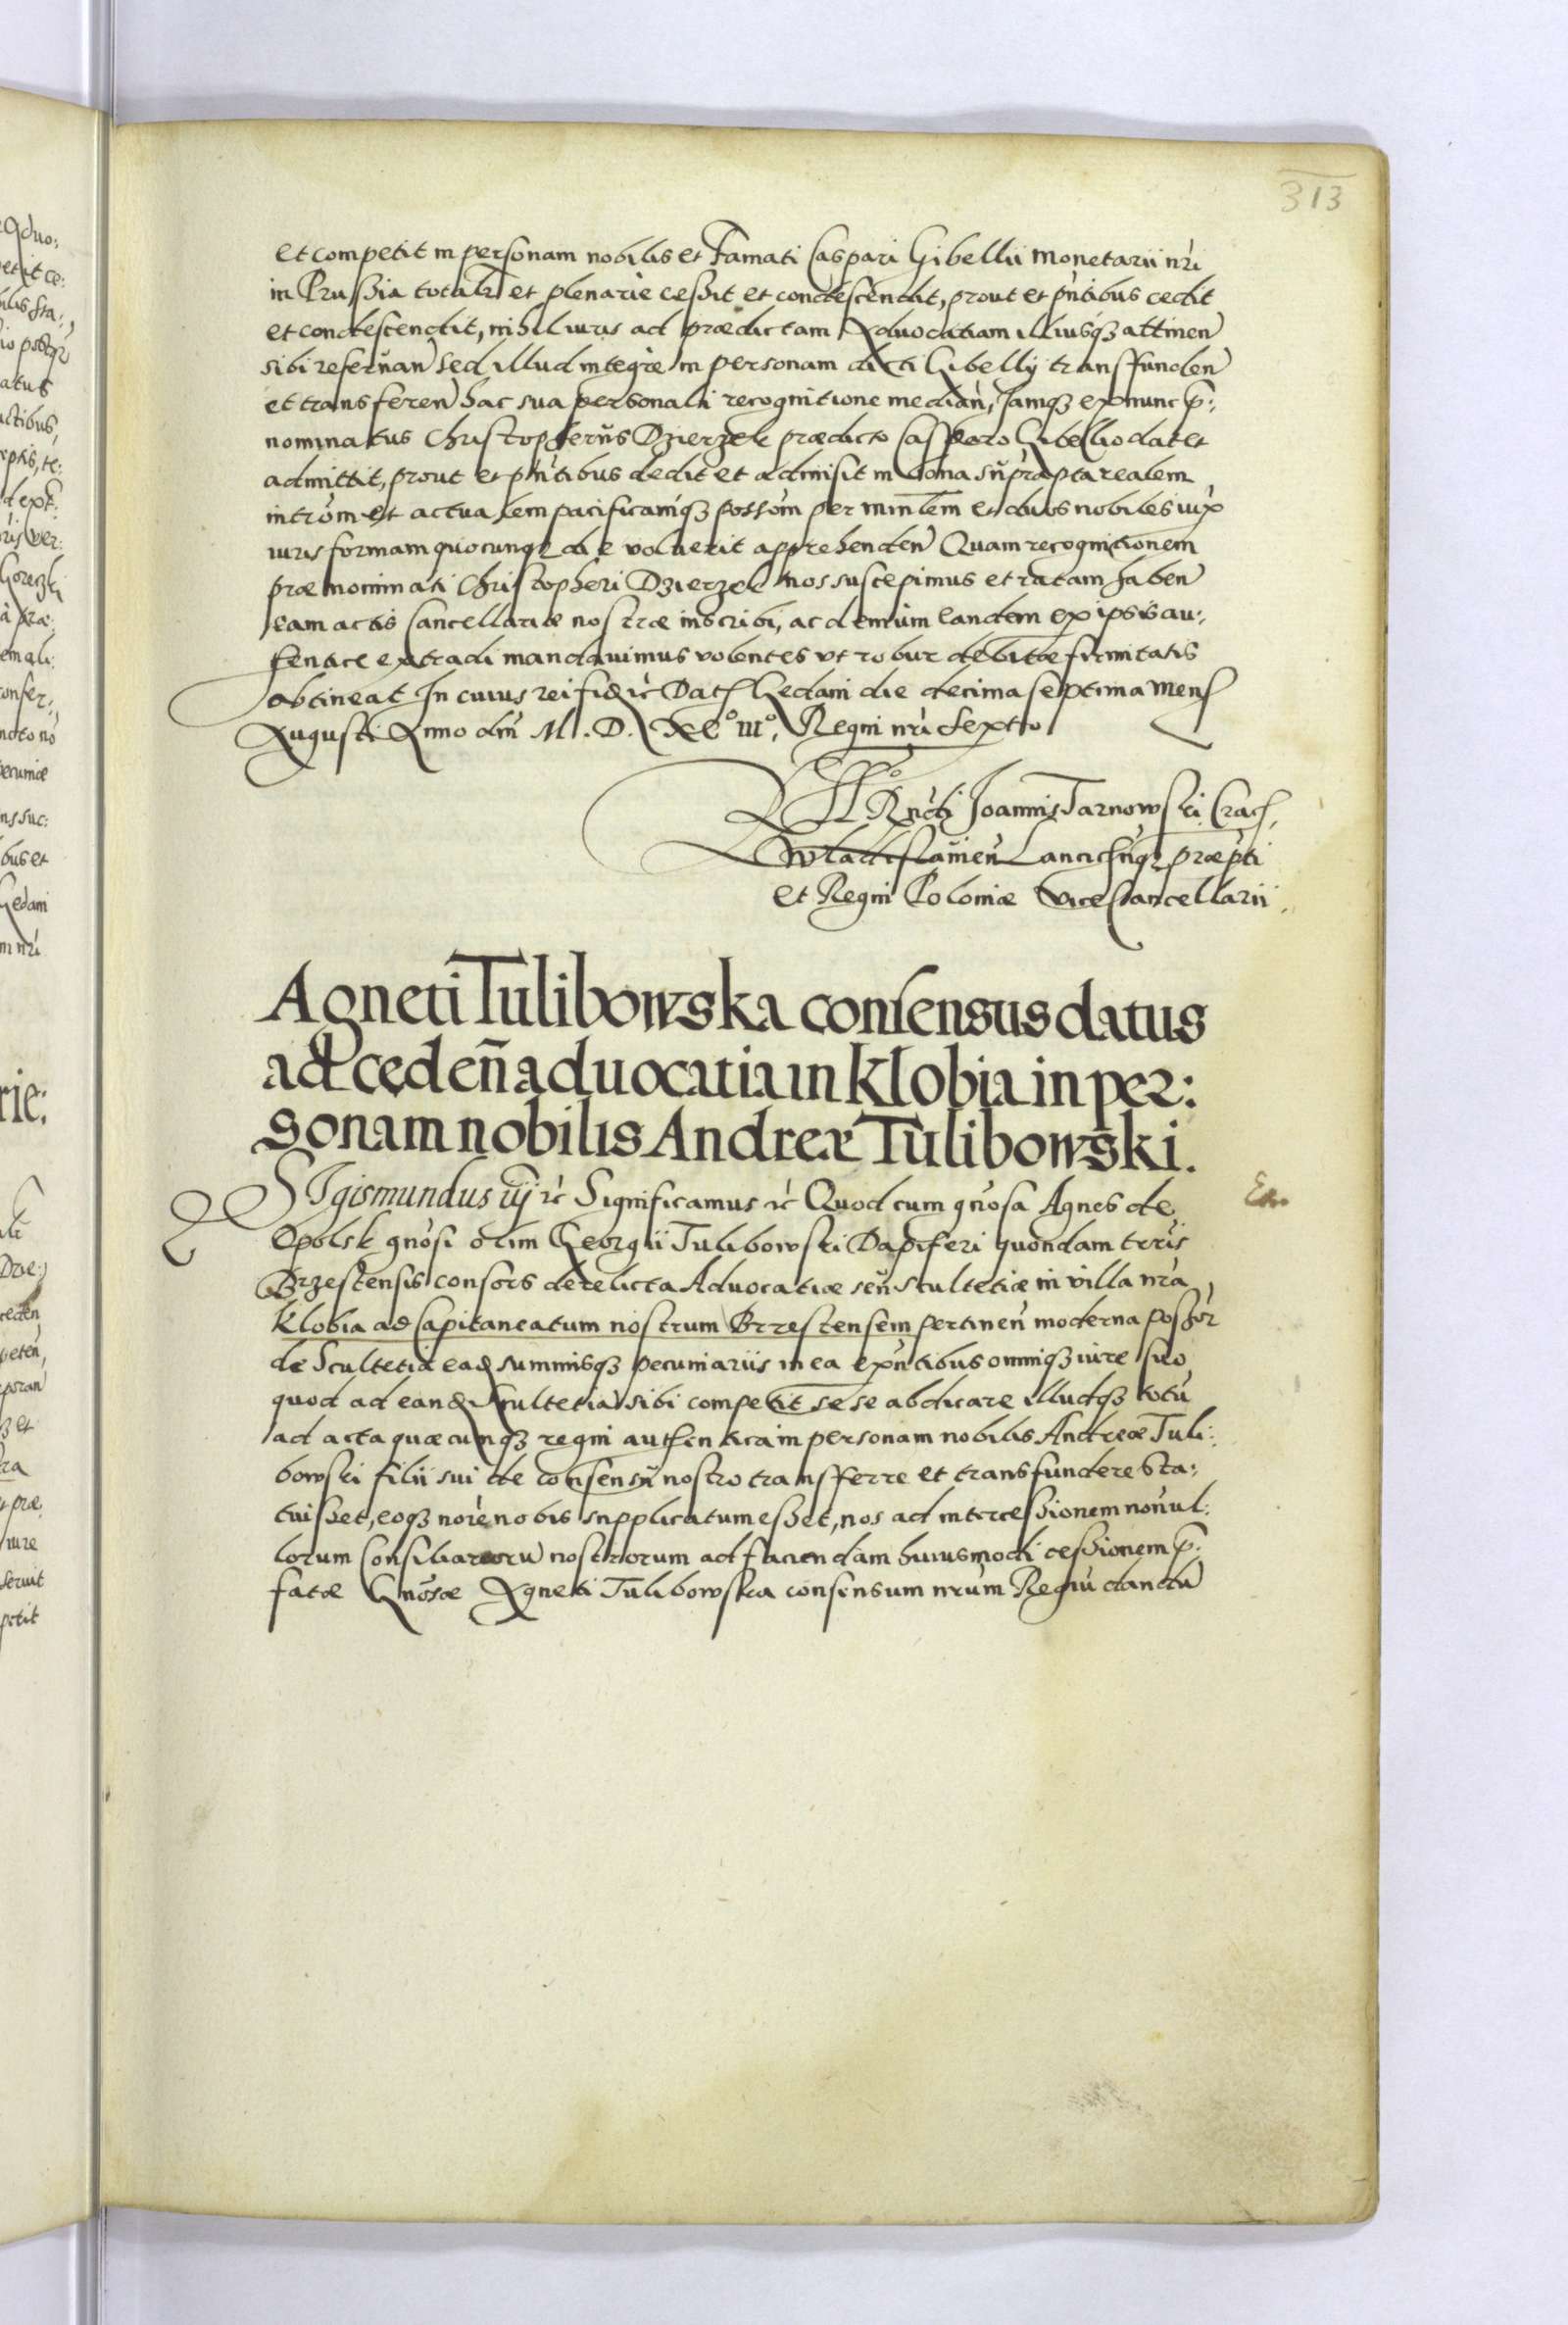 313
et competit in personam nobilis et Famati Caspari Gibellii monetarii nri
in Prussia totalr et plenarie cessit et condescendit, prout et pntibus cedit
et condescendit, nihil iuris ad prædictam Aduocatiam illiusq3 attinen
sibi reseruan sed illud integre in personam dicti Gibellij transfunden
et transferen hac sua personali recognitione median, Iamq3 ex nunc p:
nominatus Christopherus Dzierzek prædicto Casparo Gibellio dat et
admittit, prout et pntibus dedit et admisit in bona supra pta realem
introm et actualem pacificamq3 possom per minlem et duos nobiles iux
iuris formam quocunq3 die voluerit apprehenden Quam recognitionem
præ nominati Christopheri Dzierzek nos suscepimus et ratam haben
eam actis Cancellariæ nostræ inscribi, ac demum eandem ex ipsis au:
tentice extradi mandauimus volentes vt robur debitæ firmitatis
obtineat In cuius rei fid rc Dat Gedani die decima septima Mens
Augusti Anno dni M. D. XCo IIIo, Regni nri Sexto
Rndi Joannis Tarnowski Crac,
Wladislauien Lancicsnq3 præpti
et Regni Poloniæ ViceCancellarii
Agneti Tulibowska consensus datus
ad cedeñ aduocatia in Klobia in per:
sonam nobilis Andreæ Tulibowski.
SIgismundus iij rc Significamus rc Quod cum gnosa Agnes de
Opolsk gnosi olim Georgii Tulibowski Dapiferi quondam trris
Brzestensis consors derelicta Aduocatiæ seu Scultetiæ in villa nra
Klobia ad Capitaneatum nostrum Brzestensem pertinen moderna possor
de Scultetia ead summisq3 pecuniariis in ea exntibus omniq3 iure suo
quod ad eand Scultetia sibi competit sese abdicare illudq3 totu
ad acta quæcunq3 regni authentica in personam nobilis Andreæ Tuli:
bowski filii sui de consensu nostro transferre et transfundere sta:
tuisset, eoq3 noie nobis supplicatum esset, nos ad intercessionem nonul:
lorum Consiliarioru nostrorum ad faciendam huiusmodi cessionem p:
fatæ Gnosæ Agneti Tulibowska consensum nrum Regiu dandu